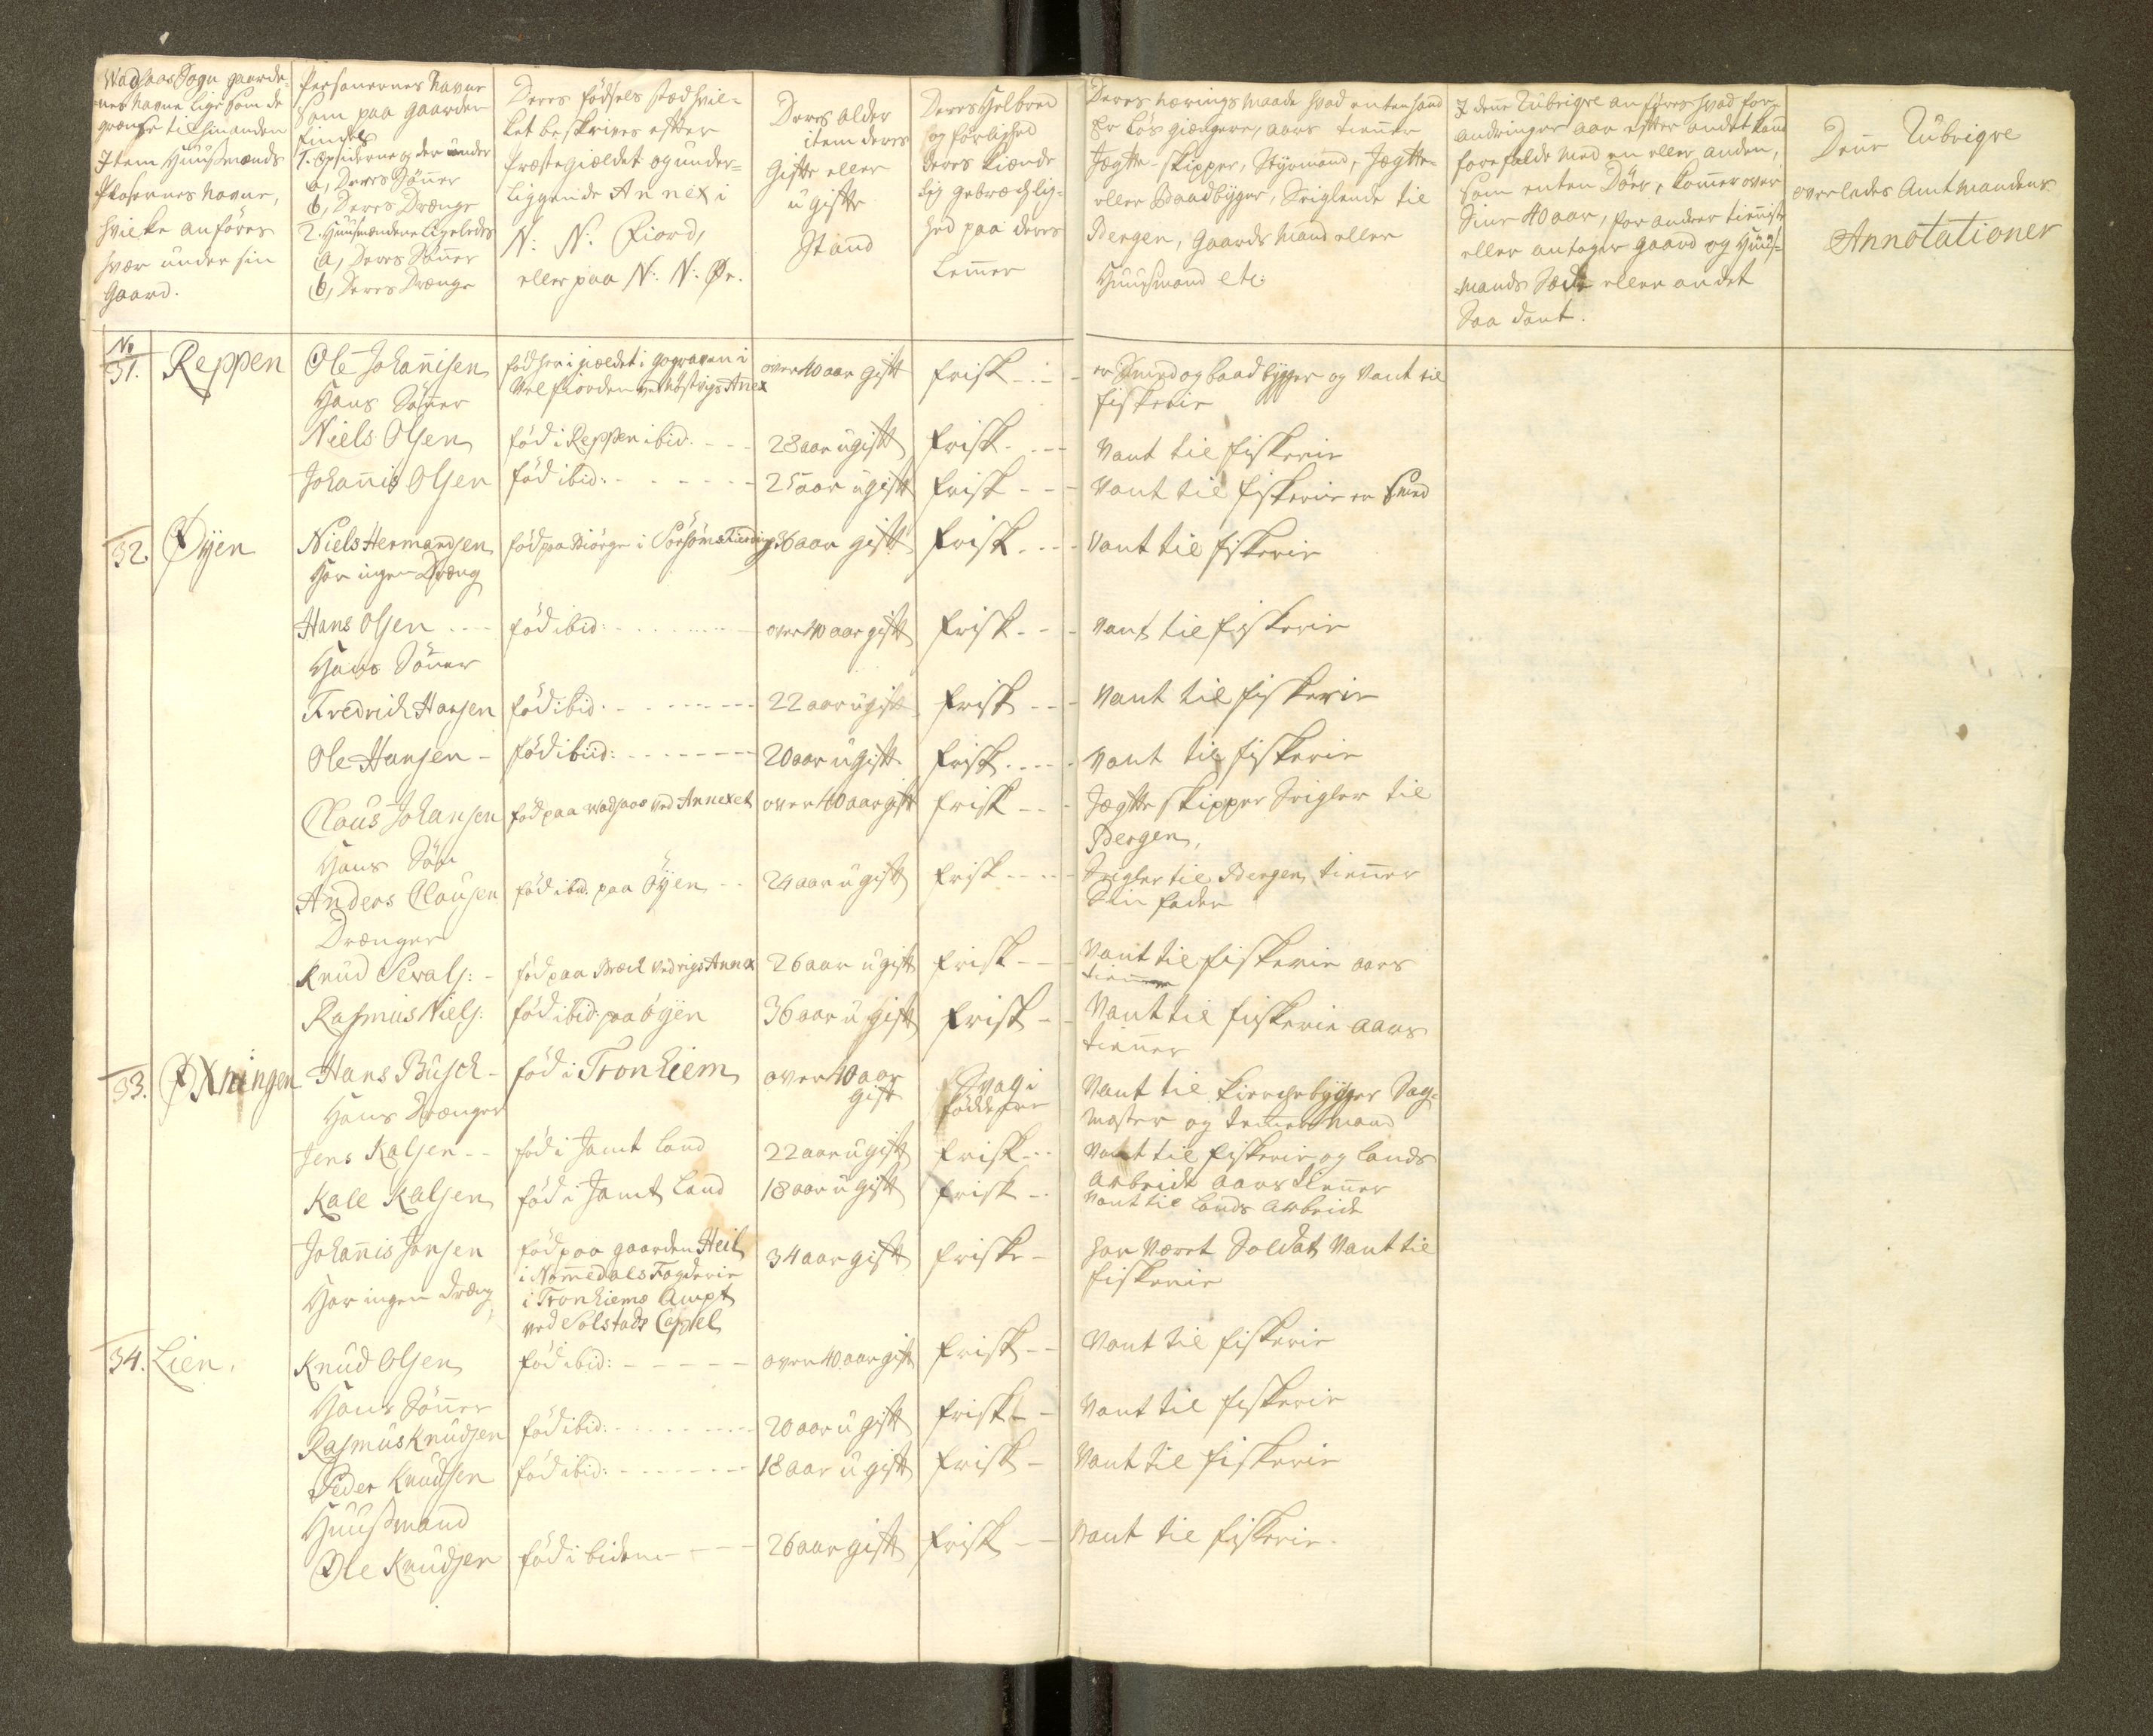 Wadsaas Sogn gaarde-
nes Navne lige som de
grændse til hinanden
Item Huusmænds
Pladsernes Navne,
hvilke anföres
hvær under sin
gaard.
Personernes Navne
som paa gaarden
findes
1. Opsiderne og der under
a, Deres Sönner
b, Deres Drænge
2. Huusmændene ligeledes
a, Deres Sönner
b, Deres Drænge
Deres födsels stæd hvil-
ket beskrives efter
Præstegieldet og under-
liggende Annex i
N: N: Fiord,
eller paa N: N: Öe.
Deres alder
item deres
gifte eller
ugifte
Stand
Deres Helbred
og förlighed
deres kiænde
lig gebræchlig-
hed paa deres
Lemmer
Deres Nærings maade hvad enten hand
er lös giængere, aars tienner
Jægtte-skipper, Styrmand, Jægtte-
eller Baadbygger, Seiglende til
Bergen, gaards mand eller
Huusmand etc:
I denne Rubriqve anföres hvad for-
andringer aar efter andet kand
forefalde med en eller anden,
som enten Döer, kommer over
Sine 40 aar, forandrer tienniste
eller antager gaard og Huus-
mands Sæde eller andet
Saa dant.
Denne Rubriqve
overlades Amtmandens
Annotationer
No
31. Reppen Ole Johannisen föd her i gieldet i
Velfiorden ved Nöstvigs Anex over 40 aar gift frisk er Smed og baadbygger og Vant til
fiskerie
Hans Sönner
Niels Olsen föd i Reppen ibid. 28 aar ugift frisk Vant til fiskerie
Johannis Olsen föd ibid: 25 aar ugift frisk Vant til fiskerie er Smed
32. Øyen Niels Hermandsen föd paa i 36 aar gift frisk Vant til fiskerie
Har ingen Dræng
Hans Olsen föd ibid: over 40 aar gift frisk Vant til fiskerie
Hans Sönner
Fredrich Hansen föd ibid: 22 aar ugift frisk Vant til fiskerie
Ole Hansen föd ibiid: 20 aar ugift frisk Vant til fiskerie
Claus Johansen föd paa Wadsaas ved Annexet over 40 aar gift frisk Jægtte skipper Seigler til
Bergen,
Hans Sön
Anders Clausen föd ibid. paa Öyen 24 aar ugift frisk Seigler til Bergen tienner
Sin fader
Drænger
Knud Sivals: föd paa Annex 26 aar ugift frisk Vant til fiskerie aars
tienner
Rasmus Niels: föd ibid: paa öyen 36 aar ugift frisk Vant til fiskerie aars
tienner
33. ØXningen Hans Busch föd i Tronhiem over 40 aar
gift Svag i
födderne Vant til kirchebygger Sag-
mester og temmermand
Hans Drænger
Jens Kalsen föd i Jamt land 22 aar ugift frisk Vant til fiskerie og lands
arbeide aars tienner
Kall Kalsen föd i Jamt Land 18 aar ugift frisk Vant til lands arbeide
Johannis Jonsen föd paa gaarden Heil
i Nommedals Fogderie
i Tronhiems Ampt
ved Solstads Capel 34 aar gift friske har været Soldat Vant til
fiskerie
Har ingen dræng
34. Lien. Knud Olsen föd ibid: over 40 aar gift frisk Vant til fiskerie
Hans Sönner
Rasmus Knudsen föd ibid: 20 aar ugift frisk Vant til fiskerie
Peder Knudsen föd ibid: 18 aar ugift frisk Vant til fiskerie
Huusmand
Ole Knudsen föd ibidem 26 aar gift frisk Vant til fiskerie.